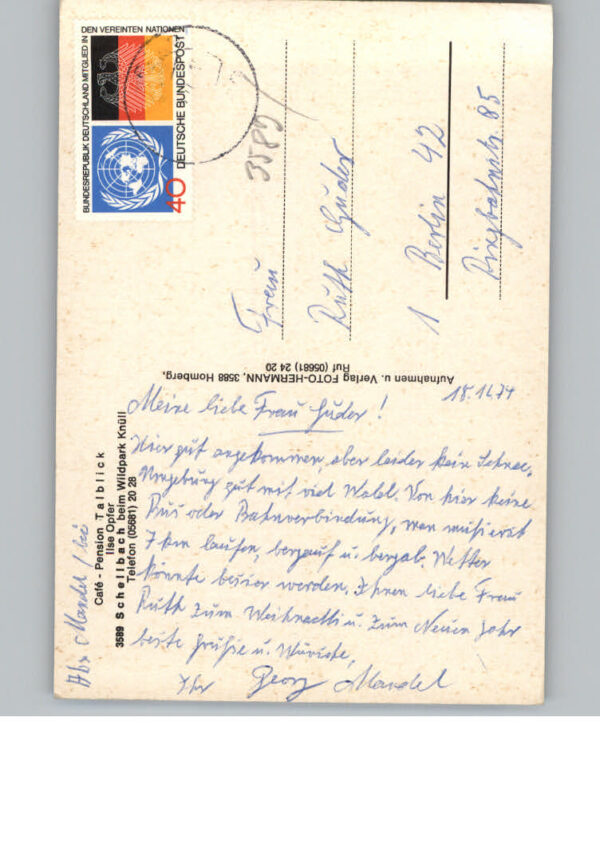 BUNDESREPUBLIK DEUTSCHLAND MITGLIED IN DEN VEREINTEN NATIONEN
DEUTSCHE BUNDESPOST
40
3589
Frau
Ruth Guder
1 Berlin 42
Ringbahnstr. 85
Aufnahmen u. Verlag FOTO-HERMANN, 3588 Homberg,
Ruf (05681) 24 20
Café - Pension Talblick
Ilse Opfer
3589 Schellbach beim Wildpark Knüll
Telefon (05681) 20 28
Abs Mandel / bei
18.12.74
Meine liebe Frau Guder!
Hier gut angekommen, aber leider kein Schnee,
Umgebung gut mit viel Wald. Von hier keine
Bus oder Bahnverbindung, man muß erst
7 km laufen, bergauf u. bergab. Wetter
könnte besser werden. Ihnen liebe Frau
Ruth zum u. zum Neuen Jahr
beste Grüße u. Wünsche,
Ihr Georg Mandel